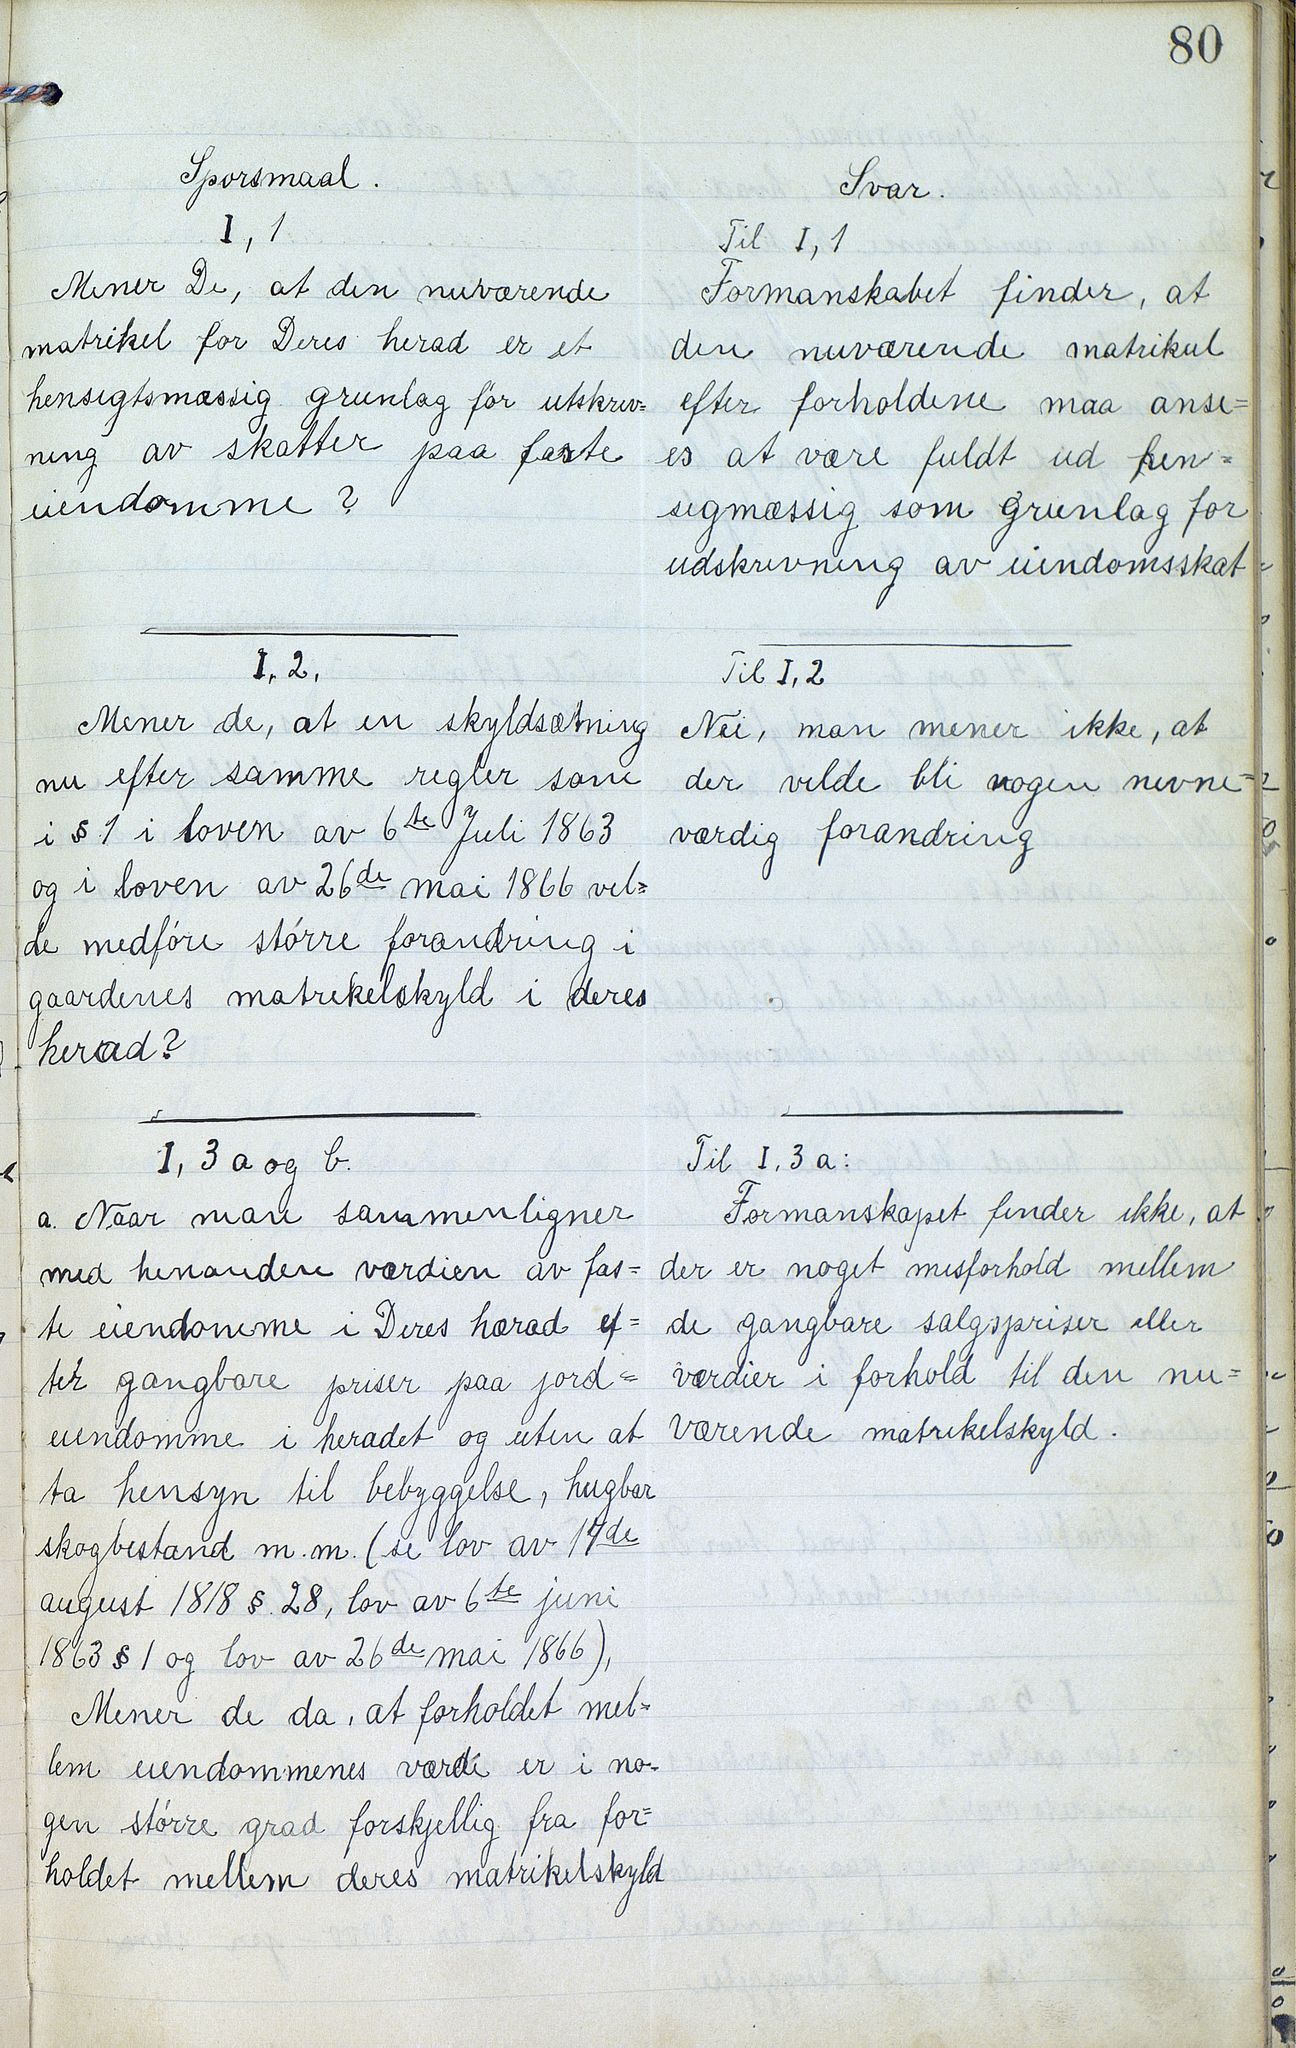 80
Sporsmaal.
I, 1
Mener De, at den nuværende
matrikel for Deres herad er et
hensigtsmæssig grunlag för utskriv=
ning av skatter paa faste
eiendomme?
I, 2,
Mener de, at en skyldsætning
nu efter samme regler som
i § 1 i loven av 6te Juli 1863
og i loven av 26de mai 1866 vil=
de medföre större forandring i
gaardenes matrikelskyld i deres
herad?
I, 3 a og b.
a. Naar man sammenligner
med henanden værdien av fas=
te eiendomme i Deres hærad ef=
ter gangbare priser paa jord=
eiendomme i heradet og uten at
ta hensyn til bebyggelse, hugbar
skogbestand m.m. (se lov av 17de
august 1818 § 28, lov av 6te juni
1863 § 1 og lov av 26de mai 1866),
Mener de da, at forholdet mel=
lem eiendommenes værdi er i no-
gen större grad forskjellig fra for=
holdet mellem deres matrikelskyld
Svar.
Til I, 1
Formanskabet finder, at
den nuværende matrikul
efter forholdene maa anse=
es at være fuldt ud hen=
sigmæssig som grunlag for
udskrivning av eiendomsskat
Til I, 2
Nei, man mener ikke, at
der vilde bli nogen nevne=
værdig forandring
Til I, 3 a:
Formanskapet finder ikke, at
der er noget misforhold mellem
de gangbare salgspriser eller
værdier i forhold til den nu=
værende matrikelskyld.